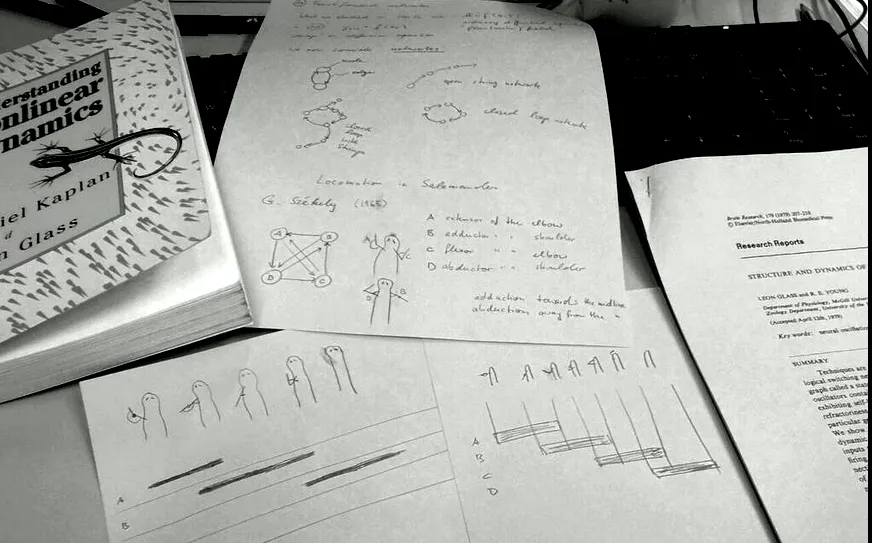 derstanding
onlinear
namics
iel Kaplan
d
n Glass
We can consider networks
node
edges
open string network
closed loop network
closed
loop
with
strings
Locomotion in Salamander
G. Székely (1965)
A extensor of the elbow
B adductor " " shoulder
C flexor " " elbow
D abductor " " shoulder
A
B
D
C
adduction towards the midline
abduction away from the "
A
B
A
B
C
D
Brain Research, 179 (1979) 207-218
© Elsevier/North-Holland Biomedical Press
Research Reports
STRUCTURE AND DYNAMICS OF
LEON GLASS and R. E. YOUNG
Department of Physiology, McGill
Zoology Department, University of the
(Accepted April 12th, 1979)
Key words: neural oscillato
SUMMARY
Techniques are
logical switching ne
graph called a state
oscillators conta
exhibiting self-
refractorines
particular ge
We show
dynamic
inputs
firing,
nect
of